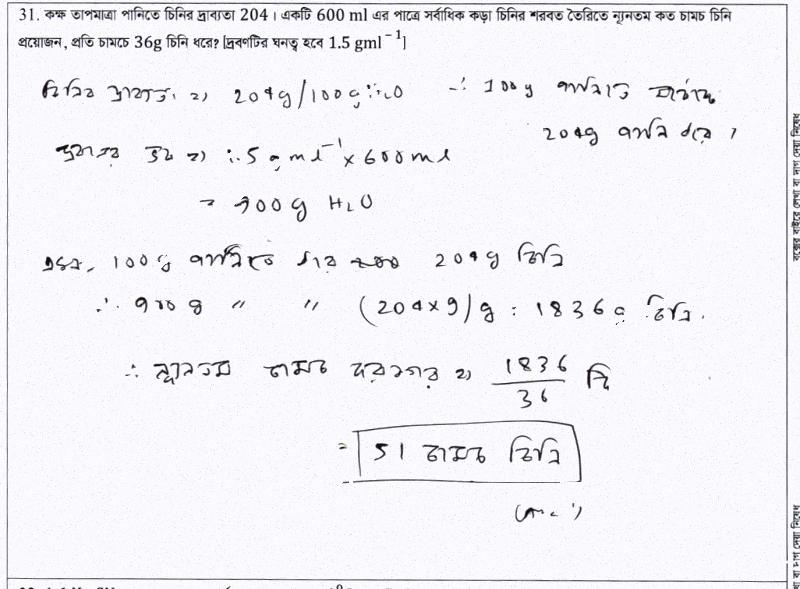 31. কক্ষ তাপমাত্রা পানিতে চিনির দ্রাব্যতা 204। একটি 600 ml এর পাত্রে সর্বাধিক কড়া চিনির শরবত তৈরিতে ন্যূনতম কত চামচ চিনি
প্রয়োজন, প্রতি চামচে 36g চিনি ধরে? [দ্রবণটির ঘনত্ব হবে 1.5 gml⁻¹]
চিনির দ্রাব্যতা 204g/100g H₂O ∴ 100g পানিতে
204g
1.5 g ml⁻¹ × 600 ml
= 900g H₂O
100g পানিতে 204g চিনি
∴ 900g " " (204×9)g = 1836g চিনি
∴ ন্যূনতম চামচ দরকার 1836/36 টি
= 51 চামচ চিনি
(Ans)